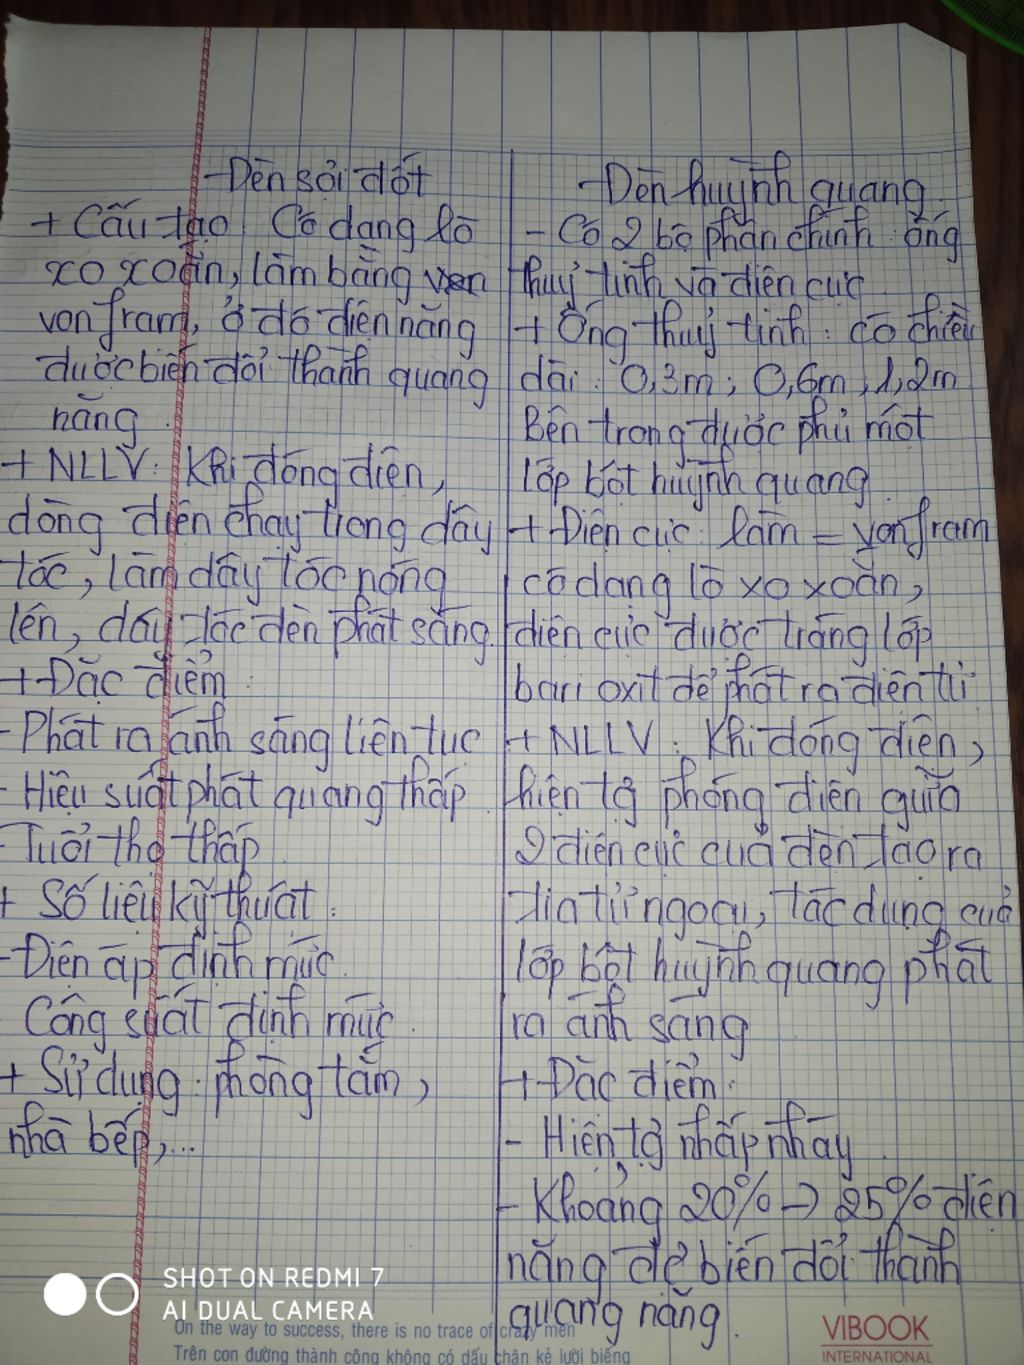 - Đèn sợi đốt
+ Cấu tạo: Có dạng lò
xo xoắn, làm bằng
vonfram, ở đó điện năng
được biến đổi thành quang
năng.
+ NLLV: Khi đóng điện,
dòng điện chạy trong dây
tóc, làm dây tóc nóng
lên, dây tóc đèn phát sáng.
+ Đặc điểm:
- Phát ra ánh sáng liên tục
- Hiệu suất phát quang thấp.
- Tuổi thọ thấp.
+ Số liệu kỹ thuật:
- Điện áp định mức.
Công suất định mức.
+ Sử dụng: phòng tắm,
nhà bếp,...
- Đèn huỳnh quang.
- Có 2 bộ phận chính: ống
thuỷ tinh và điện cực.
+ Ống thuỷ tinh: có chiều
dài: 0,3m; 0,6m, 1,2m
Bên trong được phủ một
lớp bột huỳnh quang.
+ Điện cực: làm = vonfram
có dạng lò xo xoắn,
điện cực được tráng lớp
bari oxit để phát ra điện tử
+ NLLV: Khi đóng điện,
hiện tg phóng điện giữa
2 điện cực của đèn tạo ra
tia tử ngoại, tác dụng của
lớp bột huỳnh quang phát
ra ánh sáng
+ Đặc điểm:
- Hiện tg nhấp nháy.
- Khoảng 20% -> 25% điện
năng để biến đổi thành
quang năng.
SHOT ON REDMI 7
AI DUAL CAMERA
On the way to success, there is no trace of crazy men
Trên con đường thành công không có dấu chân kẻ lười biếng
VIBOOK
INTERNATIONAL